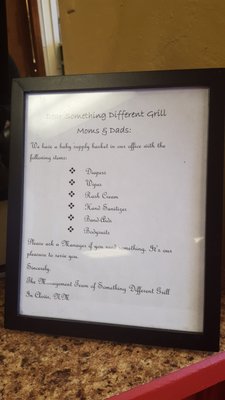 Dear Something Different Grill
Moms & Dads:
We have a baby supply basket in our office with the
following items:
❖ Diapers
❖ Wipes
❖ Rash Cream
❖ Hand Sanitizer
❖ Band-Aids
❖ Bodysuits
Please ask a Manager if you need something. It's our
pleasure to serve you.
Sincerely,
The Management Team of Something Different Grill
In Clovis, NM